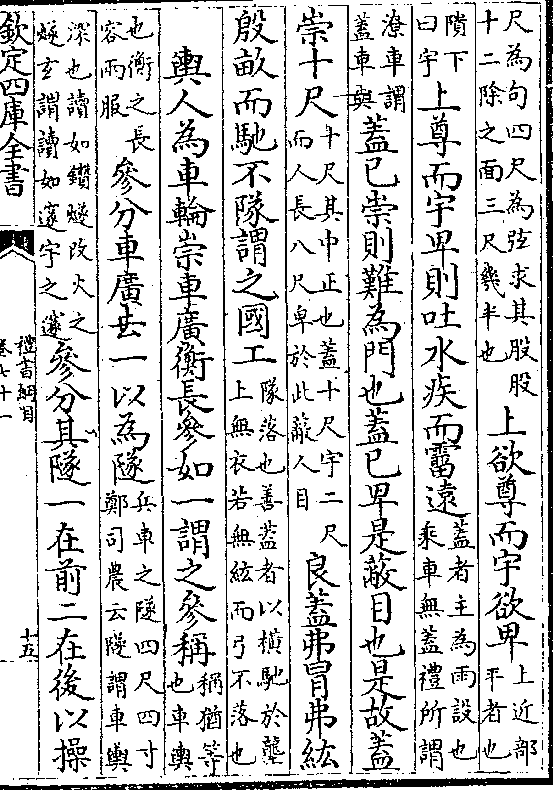 尺為句四尺為弦求其股股
十二除之面三尺幾半也
上欲尊而宇欲卑
上近部
平者也
隤下
曰宇
上尊而宇卑則吐水疾而霤遠
蓋者主為雨設也
乘車無蓋禮所謂
潦車謂
蓋車與
蓋已崇則難為門也蓋已卑是蔽目也是故蓋
崇十尺
十尺其中正也蓋十尺宇二尺
而人長八尺卑於此蔽人目
良蓋弗冒弗紘
殷畝而馳不隊謂之國工
隊落也善蓋者以横馳於壟
上無衣若無紘而弓不落也
輿人為車輪崇車廣衡長參如一謂之參稱
稱猶等
也車輿
也衡之長
容兩服
參分車廣去一以為隧
兵車之隧四尺四寸
鄭司農云隧謂車輿
深也讀如鑽燧改火之
燧𤣥謂讀如邃宇之邃
參分其隧一在前二在後以操
欽定四庫全書
禮書綱目
卷七十一
十五